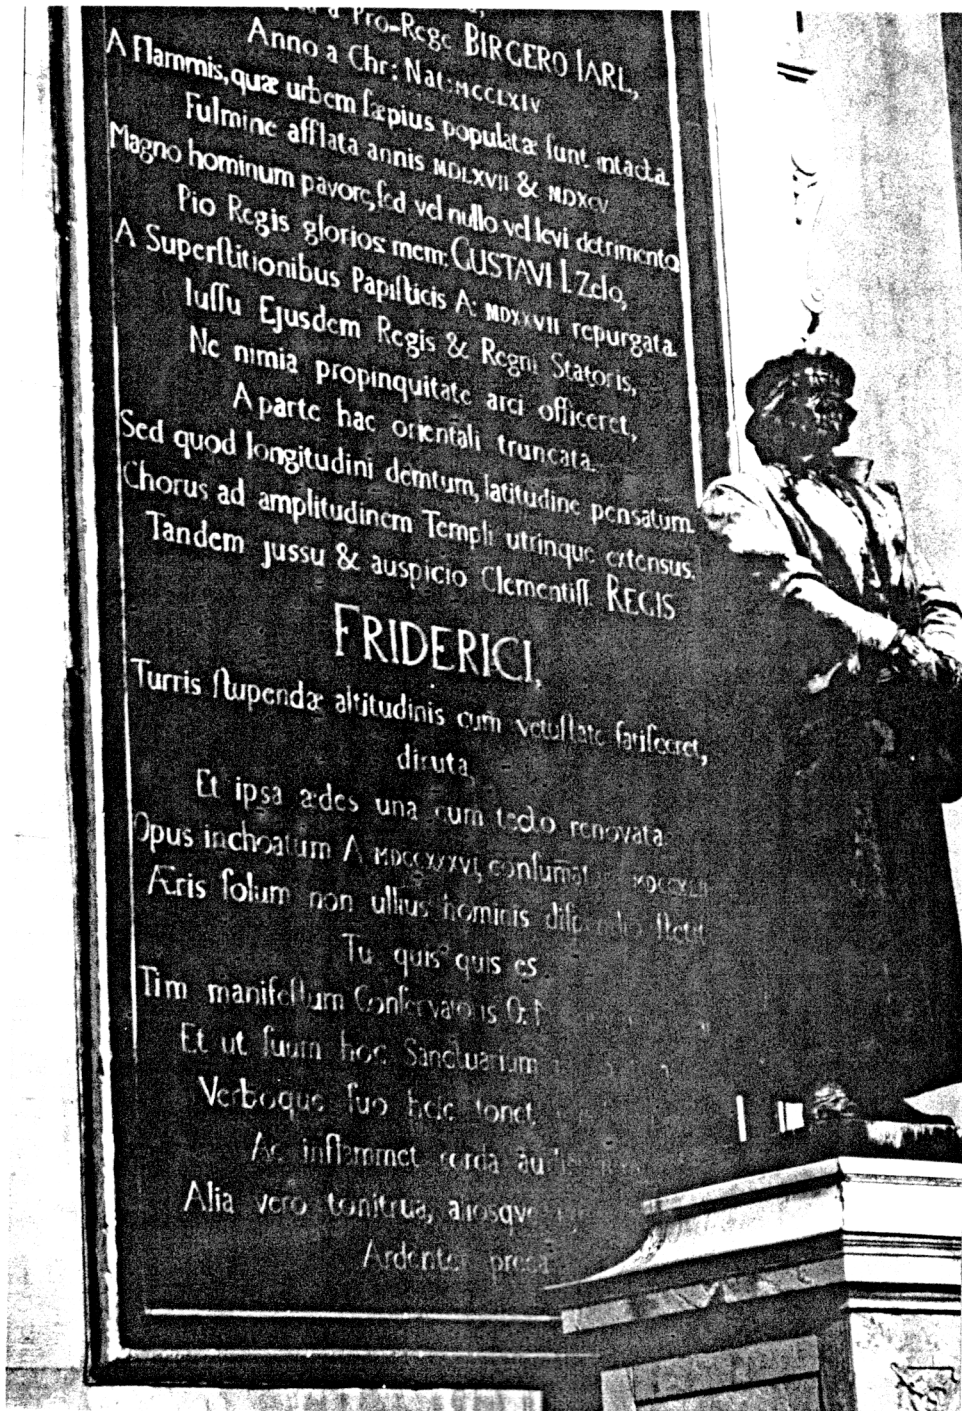 a Pro-Rege BIRGERO IARL,
Anno a Chr: Nat: MCCLXIV
A flammis, quæ urbem sæpius populatæ sunt, intacta.
Fulmine afflata annis MDLXVII & MDXCV
Magno hominum pavore, sed vel nullo vel levi detrimento
Pio Regis glorios: mem: GUSTAVI I. Zelo,
A Superstitionibus Papisticis A: MDXXVII repurgata.
Iussu Ejusdem Regis & Regni Statoris,
Ne nimia propinquitate arci officeret,
A parte hac orientali truncata.
Sed quod longitudini demtum, latitudine pensatum.
Chorus ad amplitudinem Templi utrinque extensus.
Tandem jussu & auspicio Clementiss. REGIS
FRIDERICI,
Turris stupendæ altitudinis cum vetustate fatisceret,
diruta,
Et ipsa ædes una cum tecto renovata
Opus inchoatum A MDCCXXXVI, consumat MDCCXLII
Æris solum non ullius hominis dispendio stetit
Tu quisquis es
Tim manifestum Conservatoris O:
Et ut suum hoc Sanctuarium
Verboque suo heic tonet,
Ac inflammet corda
Alia vero tonitrua, aliosqve
Ardenter